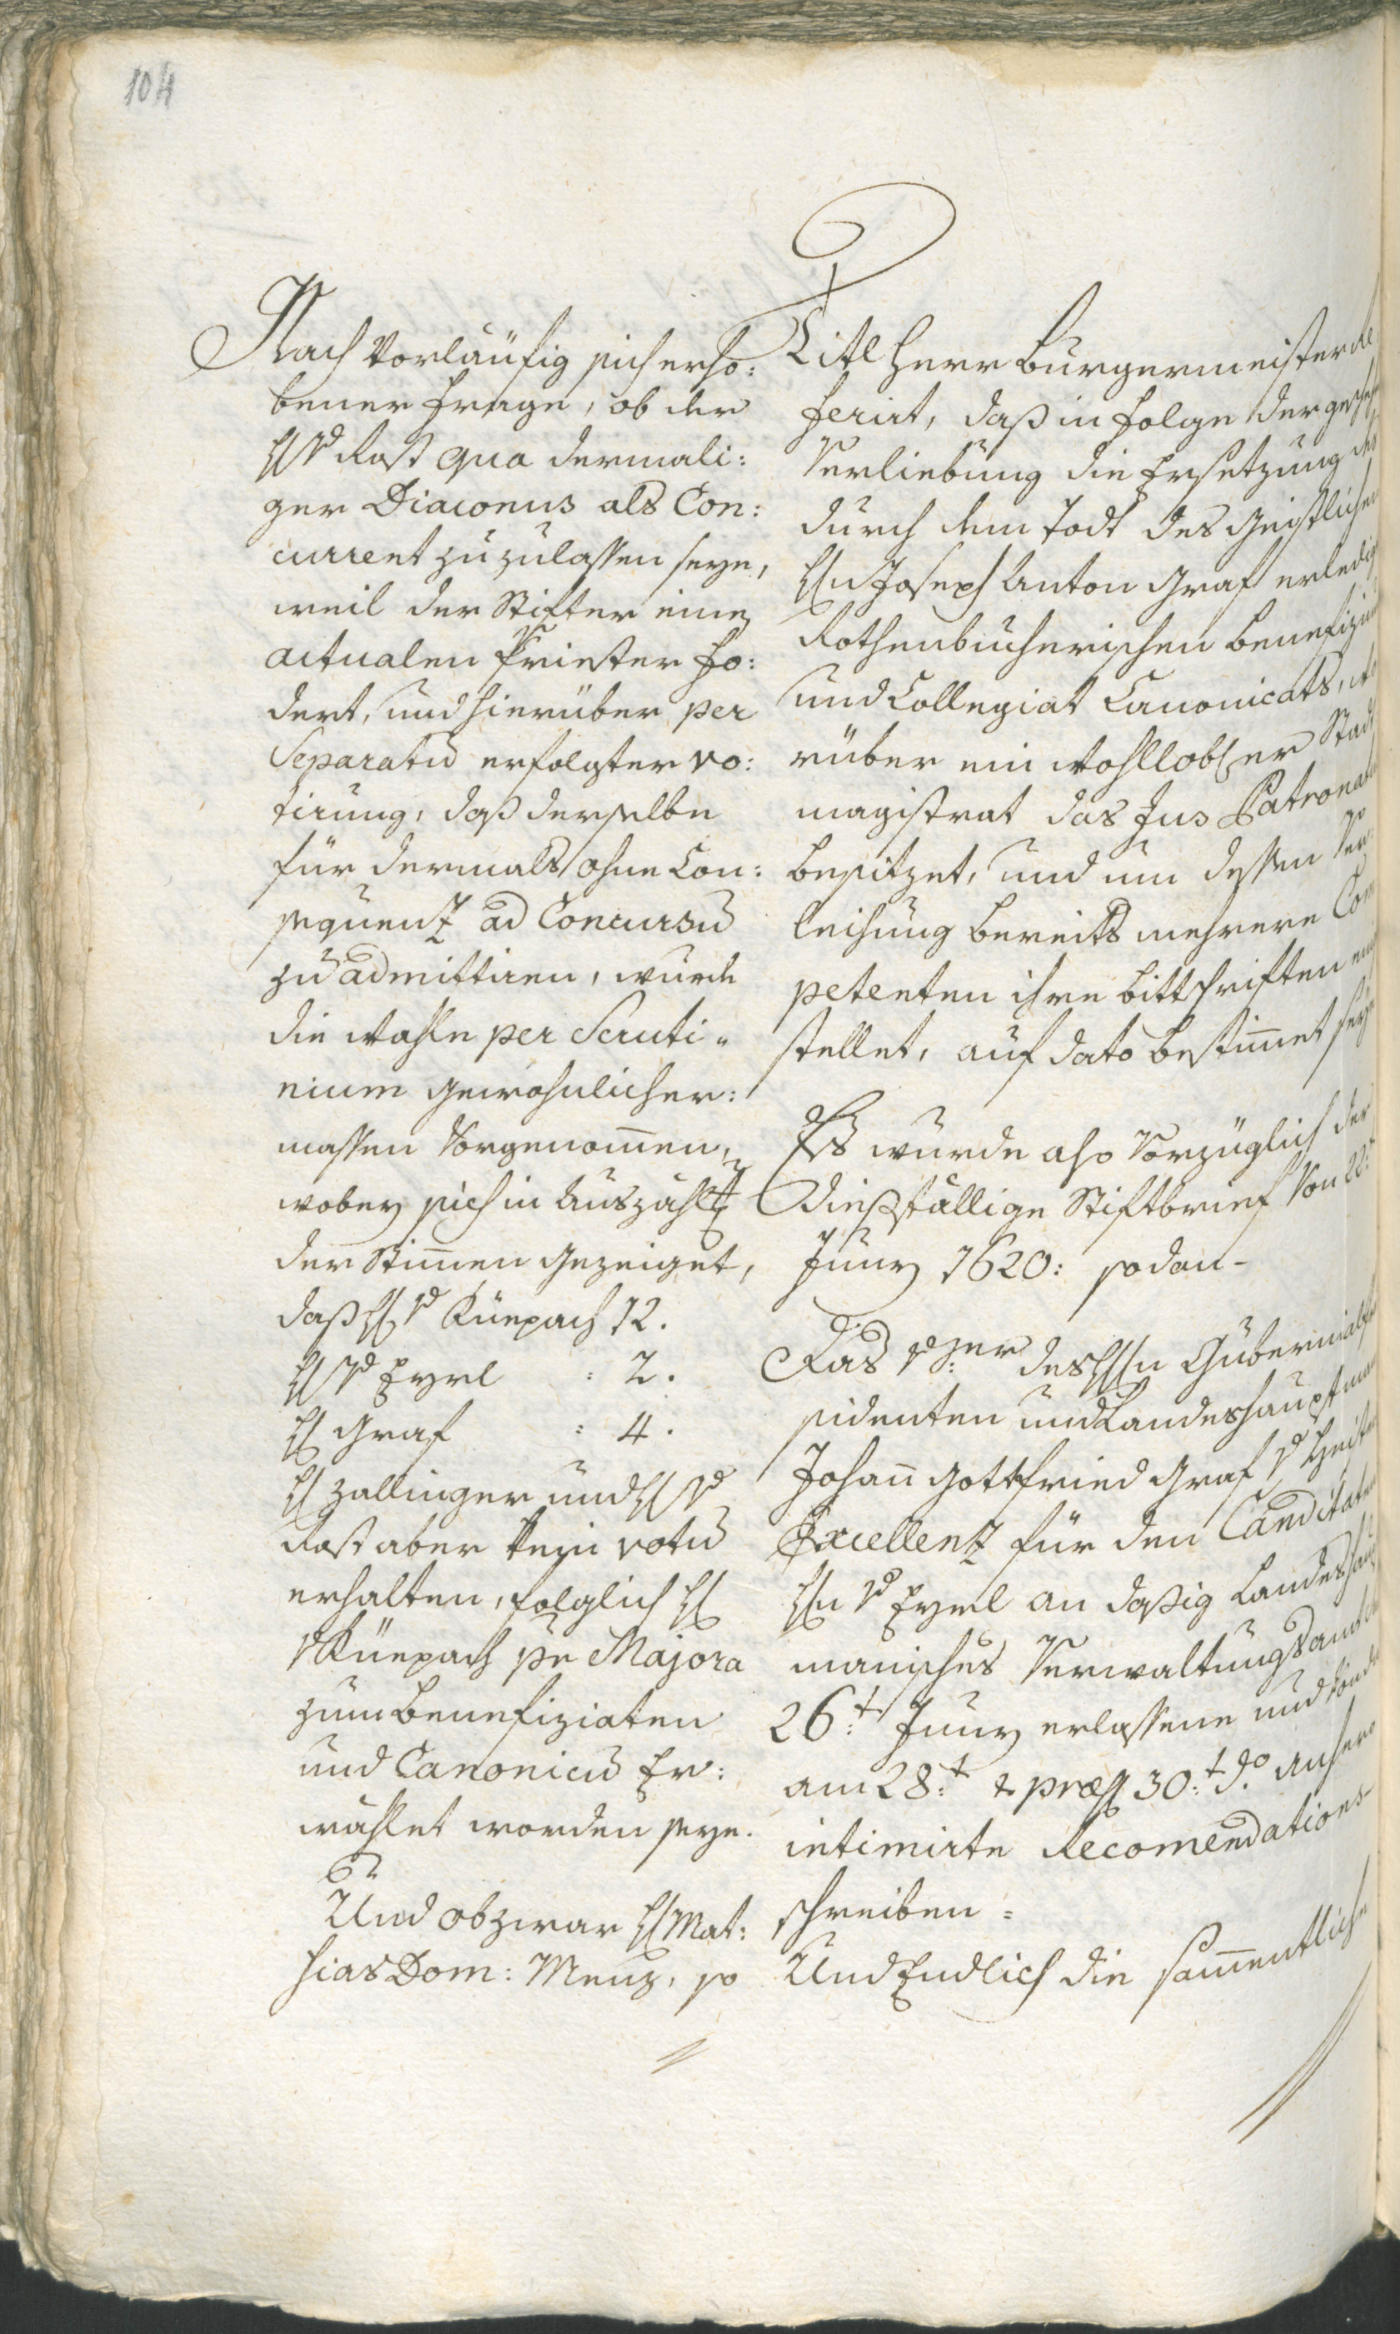 104
Nach vorläufig sich erho:
bener Frage, ob der
H v Rost qua dermali:
ger Diaconus als Con:
current zuzulassen seye,
weil der Stifter einen
actualen Priester fo:
dert, und hierüber per
Separatū erfolgter vo:
tirung, daß derselbe
für dermals ohne Con:
sequenz ad Concursū
zu admittiren, wurde
die Wahle per Scruti„
nium gewohnlicher:
massen vorgenom̄en,
wobey sich in Auszählg
der Stim̄en gezeiget,
daß H v Küepach 12.
H v Eyrl : 2.
H Graf : 4.
H Zallinger und H v
Rost aber kein votū
erhalten, folglich H
v Küepach per Majora
zum Benefiziaten
und Canonicū Er:
wählet worden seye.
Und obzwar H Mat:
hias Dom: Menz, so
Titl Herr Burgermeister Re
ferirt, daß in Folge der
Verliebung die Ersetzung des
durch dem Todt des Geistlichen
Hn Joseph Anton Graf erledigt
Rothenbucherischen Benefizium
und Collegiat Canonicats, wo
rüber ein Wohllobler Stadt
magistrat das Jus Patronat
besitzet, und um dessen Ver
leihung bereits mehrere Com
petenten ihre Bittschriften
stellet, auf dato bestim̄et seye
Es wurde also vorzüglich der
dießfällige Stiftbrief von 22:
Juny 1620: sodan-
Das v des Hn Gubernial
sidenten und Landeshauptman
Johan̄ Gottfried Graf v Heister
Excellenz für den Canditaten
Hn v Eyrl an dasig Landeshaupt
manisches Verwaltungsamt
26:t Juny erlassene und
am 28:t & præs 30:t do anhero
intimirte Recomendations-
schreiben =
Und Endlich die sam̄entliche